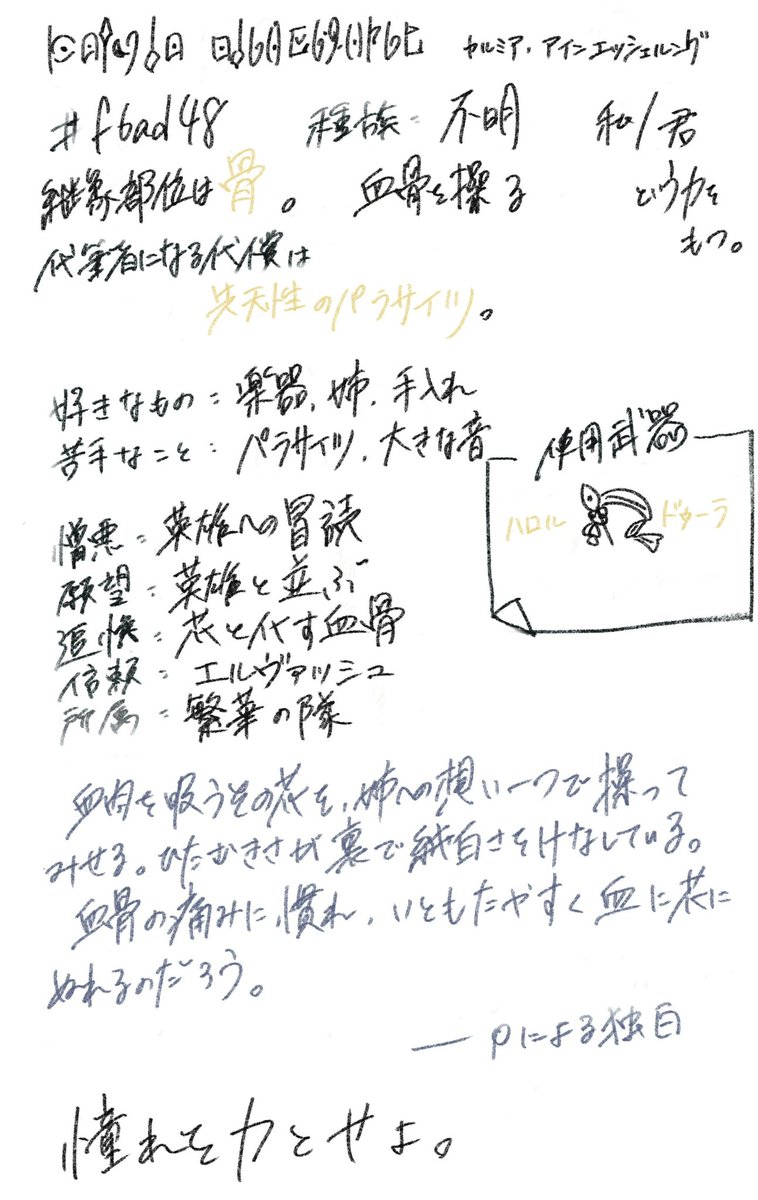 カルミア・アインエッシェルング
#f6ad48 種族：不明 私/君
継象部位は骨。 血骨を操る という力を
もつ。
代筆者になる代償は
先天性のパラサイツ。
好きなもの：楽器、姉、手入れ
苦手なこと：パラサイツ、大きな音
使用武器
ハロル ドゥーラ
憎悪：英雄への冒読
願望：英雄と並ぶ
追悔：花と代す血骨
信頼：エルヴァッシュ
所属：繁華の隊
血肉を吸うその花を、姉への想い一つで操って
みせる。ひたむきさが裏で純白さをけなしている。
血骨の痛みに慣れ、いともたやすく血に花に
ぬれるのだろう。
――Pによる独白
憧れを力とせよ。